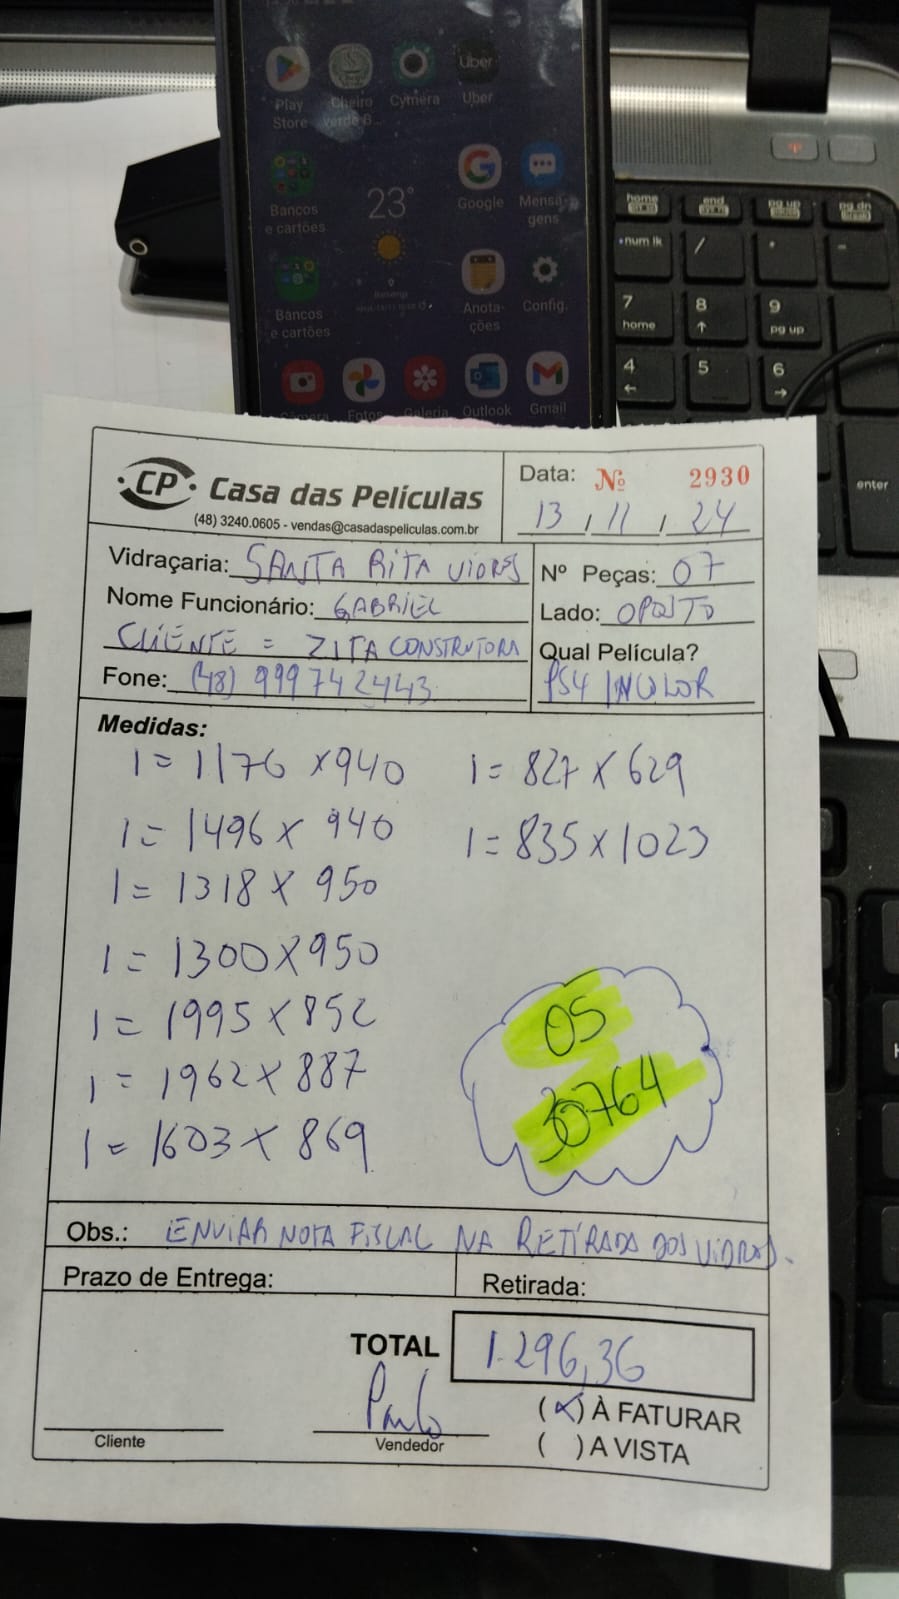 Play Store
Cheiro verde B...
Cymera
Uber
Uber
Bancos e cartões
23°
Google
Mensagens
Bancos e cartões
Anotações
Config.
Câmera
Fotos
Galeria
Outlook
Gmail
home
end
pg up
pg dn
num lk
/
*
-
7 home
8
9 pg up
4
5
6
enter
CP Casa das Películas
(48) 3240.0605 - vendas@casadaspeliculas.com.br
Data: Nº 2930
13 / 11 / 24
Vidraçaria: SANTA RITA VIDROS
Nº Peças: 07
Nome Funcionário: GABRIEL
Lado: OPOSTO
CLIENTE = ZITA CONSTRUTORA
Qual Película?
Fone: (48) 999742443
PS4 INCOLOR
Medidas:
1 = 1176 x 940
1 = 1496 x 940
1 = 1318 x 950
1 = 1300 x 950
1 = 1995 x 852
1 = 1962 x 887
1 = 1603 x 869
1 = 827 x 629
1 = 835 x 1023
OS
30764
Obs.: ENVIAR NOTA FISCAL NA RETIRADA DOS VIDROS.
Prazo de Entrega:
Retirada:
TOTAL 1.296,36
Paulo
(X) À FATURAR
Cliente
Vendedor
( ) A VISTA